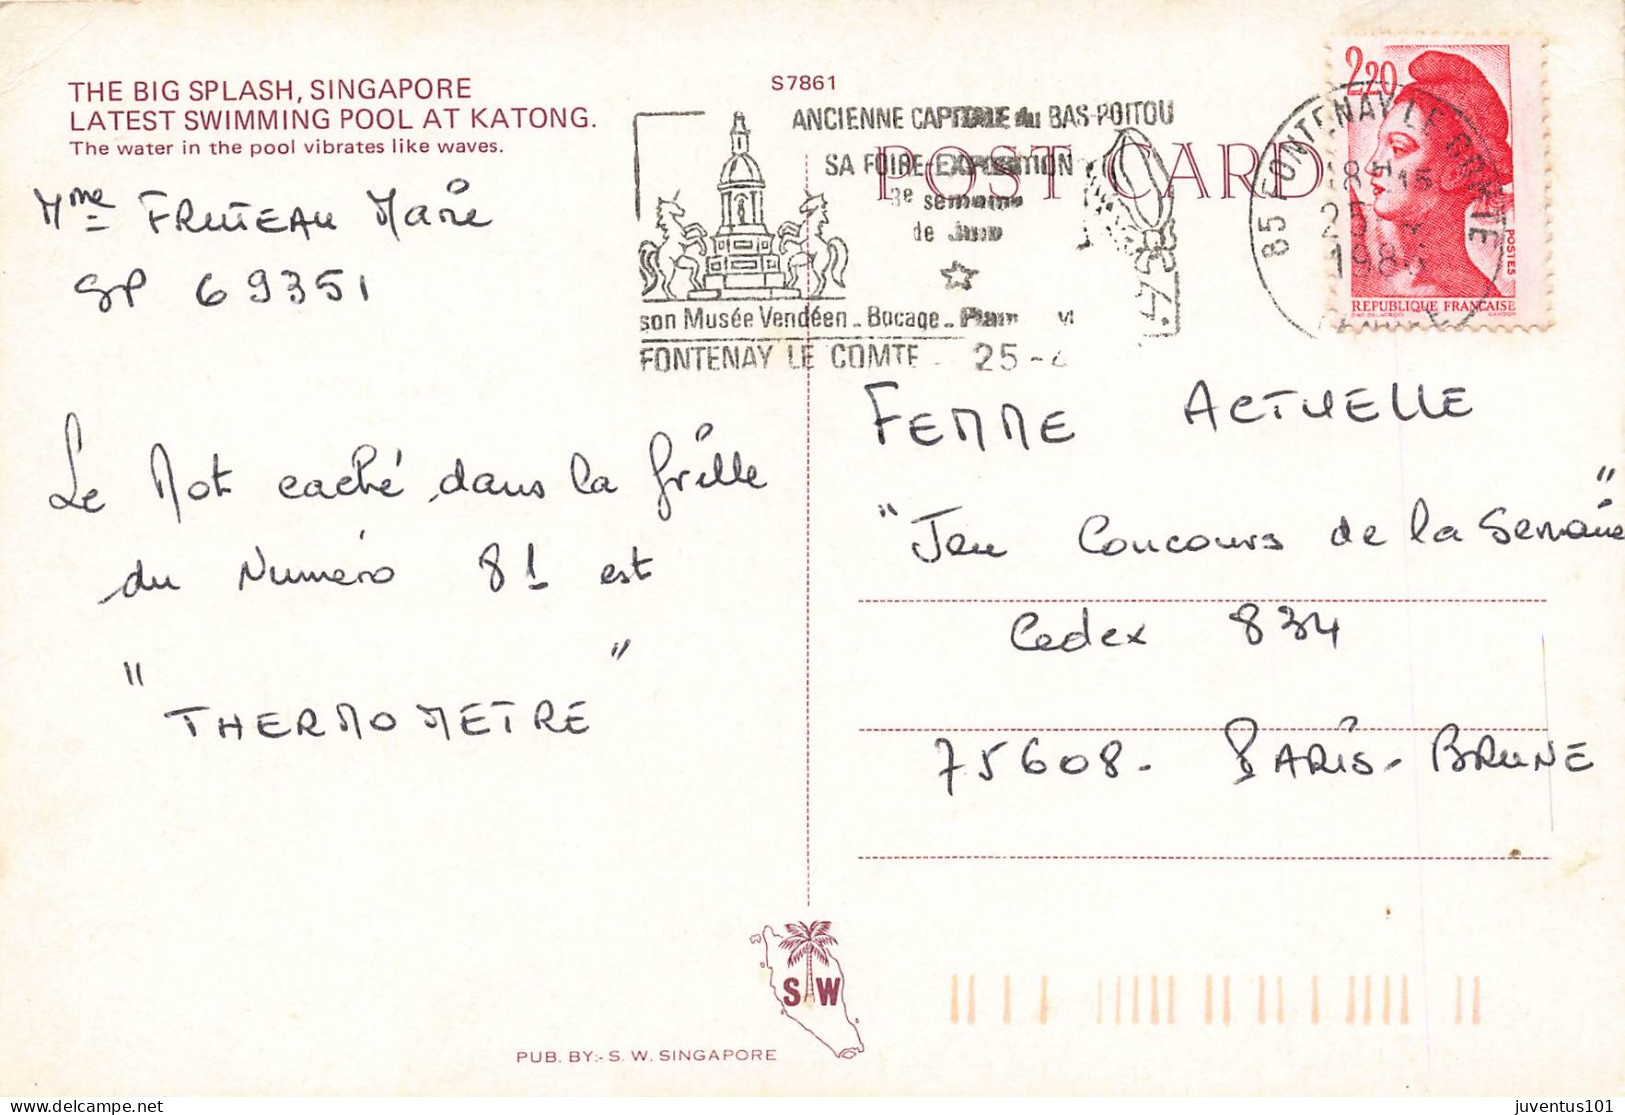 THE BIG SPLASH, SINGAPORE
LATEST SWIMMING POOL AT KATONG.
The water in the pool vibrates like waves.
S7861
POST CARD
ANCIENNE CAPITALE du BAS-POITOU
SA FOIRE-EXPOSITION
3e semaine
de Juin
son Musée Vendéen - Bocage - Plaine
FONTENAY LE COMTE - 25-4
85 FONTENAY LE COMTE
18H15
25 4
198
2,20
POSTES
REPUBLIQUE FRANCAISE
GANDON
Mme FRUTEAU Marie
SP 69351
Le Mot caché dans la grille
du Numéro 81 est
" THERMOMETRE "
FEMME ACTUELLE
"Jeu Concours de la Semaine"
Cedex 834
75608 - PARIS - BRUNE
S W
PUB. BY:- S. W. SINGAPORE
juventus101